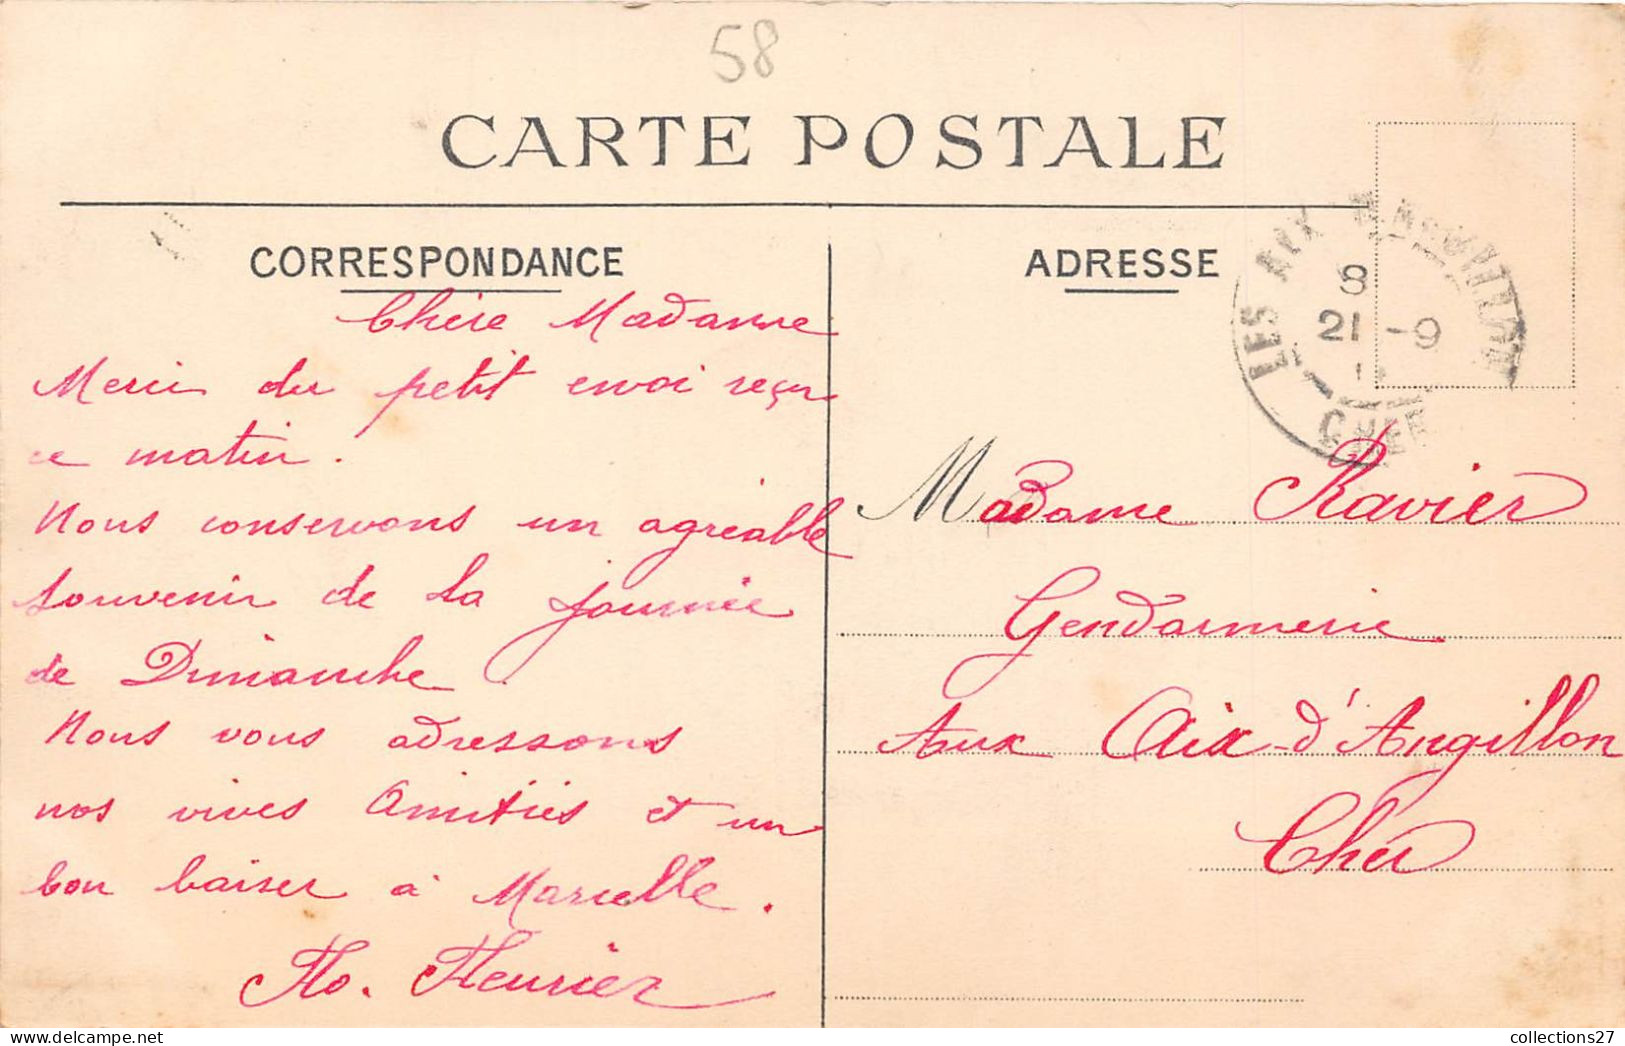 58
CARTE POSTALE
CORRESPONDANCE
Chère Madame
Merci du petit envoi reçu
ce matin.
Nous conservons un agréable
souvenir de la journée
de Dimanche.
Nous vous adressons
nos vives amitiés et un
bon baiser à Marcelle.
Flo. Fleurier
ADRESSE
LES AIX
8
21 -9
CHER
Madame Ravier
Gendarmerie
Aux Aix-d'Angillon
Cher
collections27